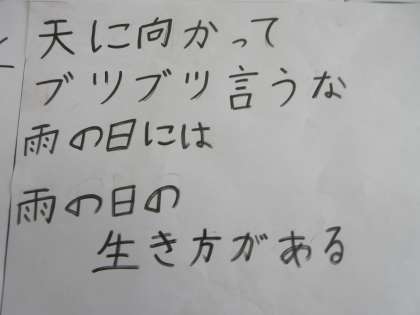 天に向かって
ブツブツ言うな
雨の日には
雨の日の
生き方がある